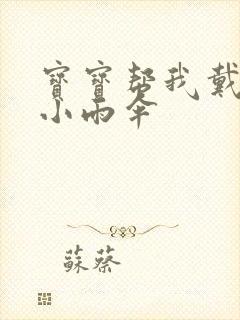 寶寶帮我戴
小雨伞
蘇蔡